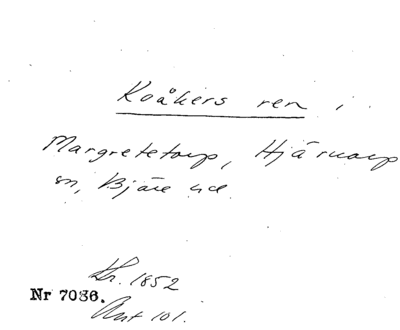 Koåkers ren i
Margretetorp, Hjärnarp
sn, Bjäre hd.
Kr. 1852
Nr 7036.
Ant 101.